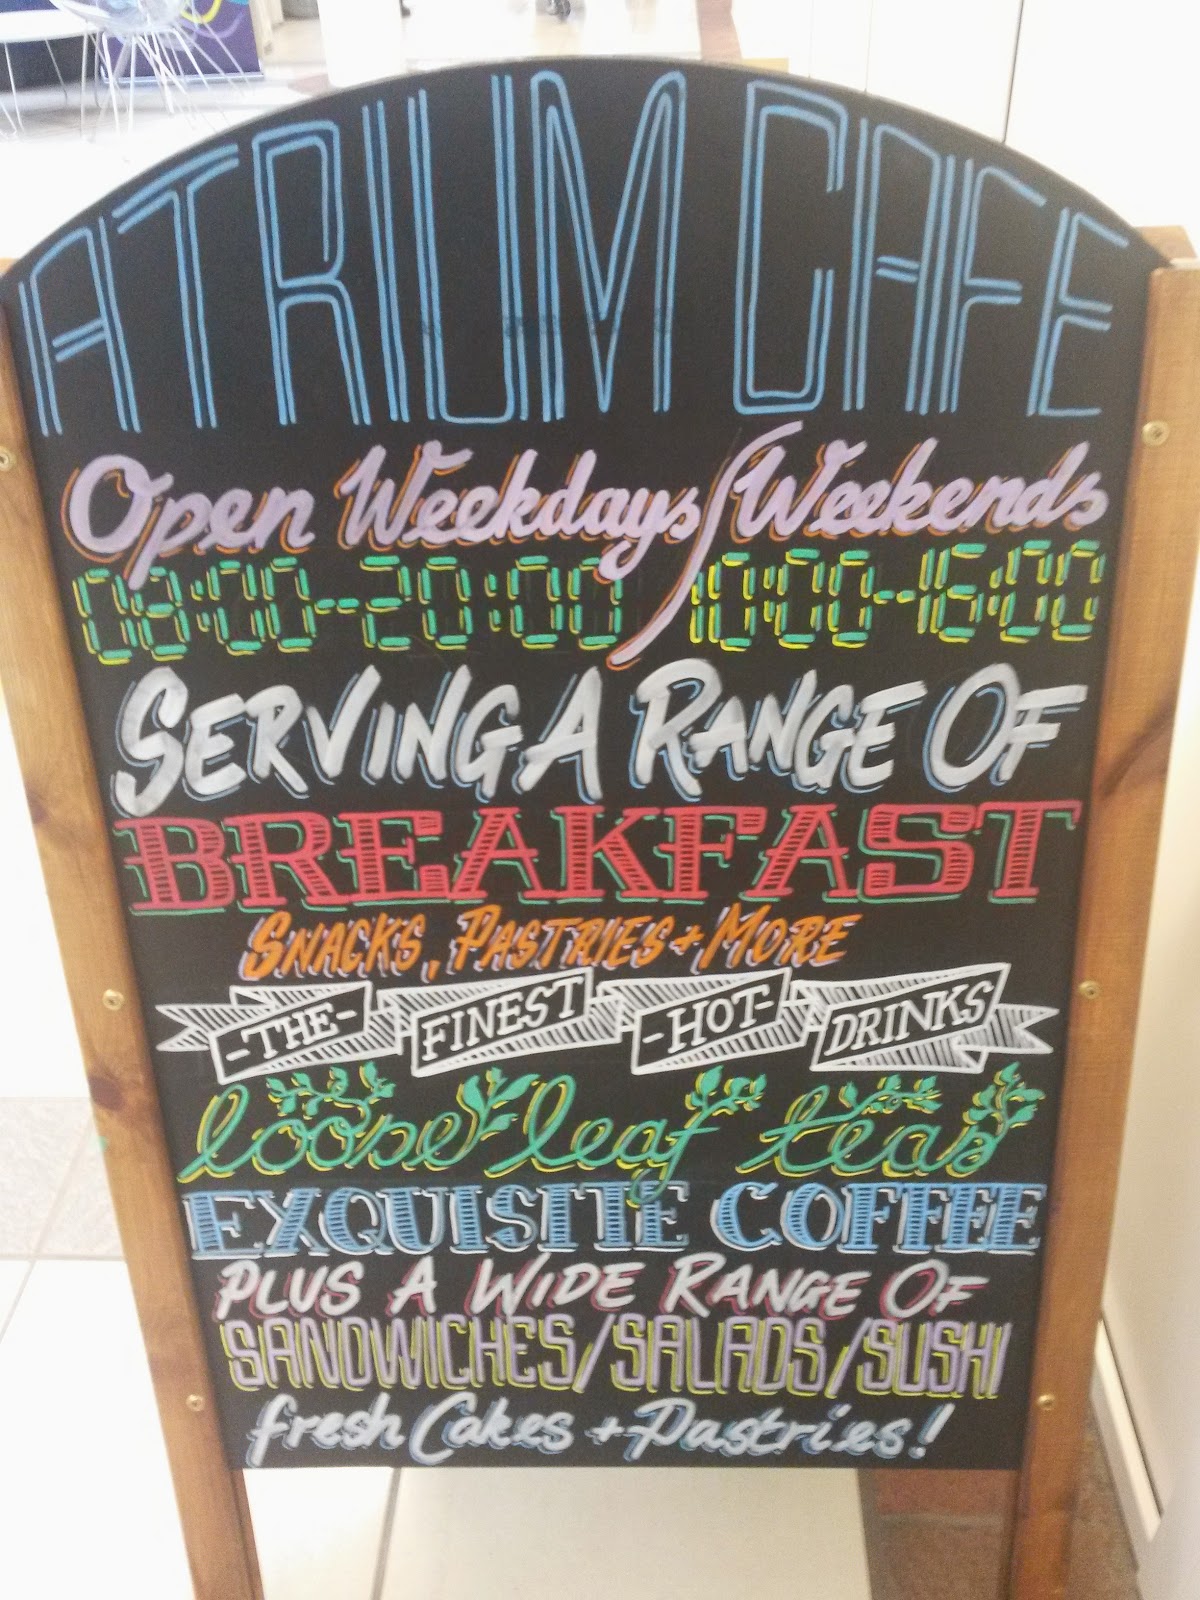 ATRIUM CAFE
Open Weekdays/Weekends
08:00-20:00 10:00-16:00
SERVING A RANGE OF
BREAKFAST
SNACKS, PASTRIES + MORE
-THE- FINEST -HOT- DRINKS
loose leaf teas
EXQUISITE COFFEE
PLUS A WIDE RANGE OF
SANDWICHES/SALADS/SUSHI
fresh Cakes + Pastries!